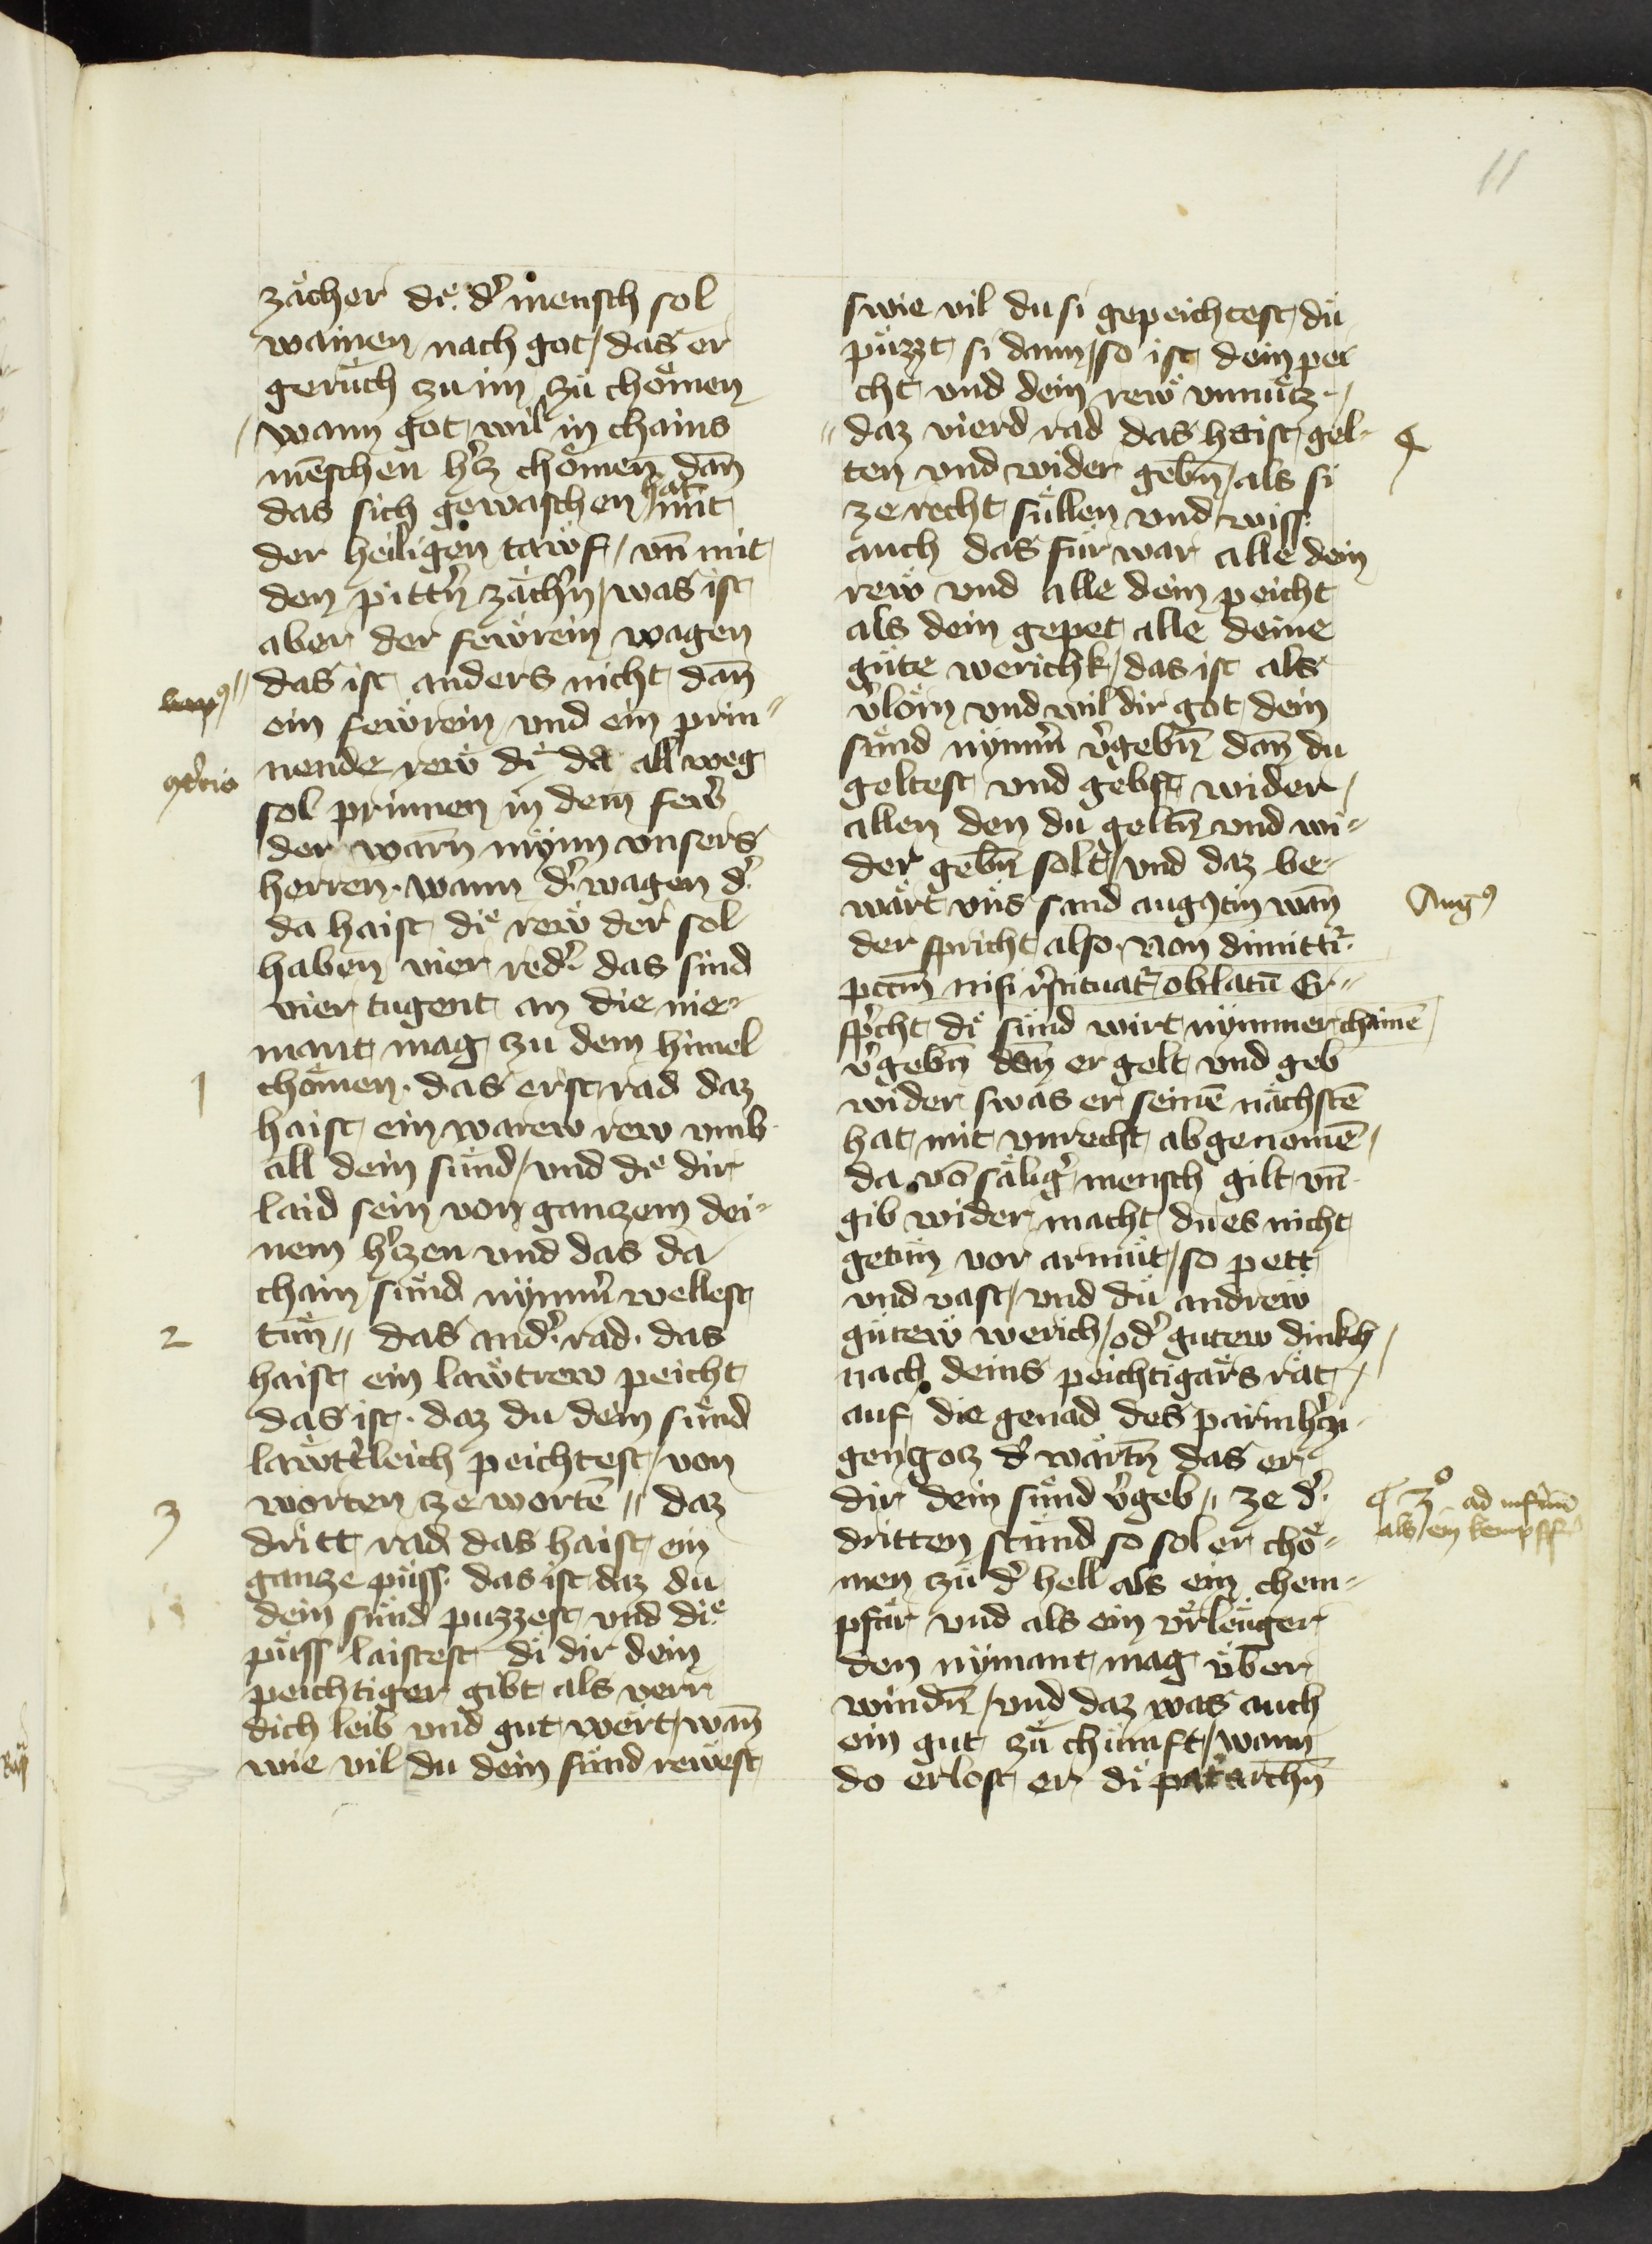 11
zächer die d᷑ mensch sol
wainen nach got / das er
geruͤch zu im zuͤ choͤmen
wann got wil in chains
mēschen h᷑cz choͤmen dān
das sich gewaschen hat mit
der heiligen tawf / vn̄ mit
den pitt᷑n zäch᷑n / was ist
aber der fewrein wagen
das ist anders nicht dān
ein fewrein vnd ein prin⸗
nende rew di da all weg
sol prinnen in dem few᷑
der warn̄ mynn vnsers
herren · wann d᷑ wagen d᷑
da haist die rew der sol
haben vier red᷑ · das sind
vier tugent an die nie⸗
mant mag zu dem himel
choͤmen · das erst rad daz
haist ein warew rew vmb
all dein suͤnd / vnd die dir
laid sein von ganczem dei⸗
nem h᷑czen vnd das da
chain suͤnd nymm᷑ wellest
tuͤn // das and᷑ rad · das
haist ein lawtrew peicht
das ist · daz du dein suͤnd
lawtt᷑leich peichtest / von
worten ze wortē // daz
dritt rad das haist ein
gancze puͤss · das ist daz du
dein suͤnd puzzest vnd die
puͤss laistest di dir dein
peichtiger gibt als verr
dich leib vnd gut wert / wān
wie vil du dein suͤnd rewest
1
2
3
swie vil du si gepeichtest / du
puͤzzt si dann / so ist dein pei
cht vnd dein rew vnnuͤcz ·
daz vierd rad das haist gel⸗
ten vnd wider gebn̄ / als si
ze recht suͤllen vnd wiss
auch das fuͤr war alle dein
rew vnd alle dein peicht
als dein gepet alle deine
guͤte werichk / das ist als
v᷑lorn vnd wil dir got dein
suͤnd nymm᷑ v᷑gebn̄ dān du
geltest vnd gebst wider
allen den du geltn̄ vnd wi⸗
der gebn̄ solt / vnd daz be⸗
wärt vns sand augꝰtin wān
der spricht also · Non dimittit᷑
pctm̄ nisi r᷑stituat᷑ oblatū Er
sp᷑cht di suͤnd wirt nymmer chainē
v᷑gebn̄ den er gelt vnd geb
wider swas er seinē nächstē
hat mit vnrecht abgenomē
da vō sälig᷑ mensch gilt vn̄
gib wider macht du es nicht
getuͤn vor armuͤt / so pett
vnd vast / vnd du andrew
guͤtew werich / od᷑ gutew dinkch
nach deins peichtigärs rat
auf die genad des parmh᷑czi
gen gocz d᷑ wartn̄ das er
dir dein suͤnd v᷑geb // ze d᷑
dritten stund so sol er choͤ⸗
men zu d᷑ hell als ein chem⸗
pfär vnd als ein vrleuger
den nymant mag vber
windn̄ / vnd daz was auch
ein gut zuͤ chunft / wann
do erlost er di pat᷑archn̄
Augꝰ
3º ad inf᷑nū
als ein kempff᷑